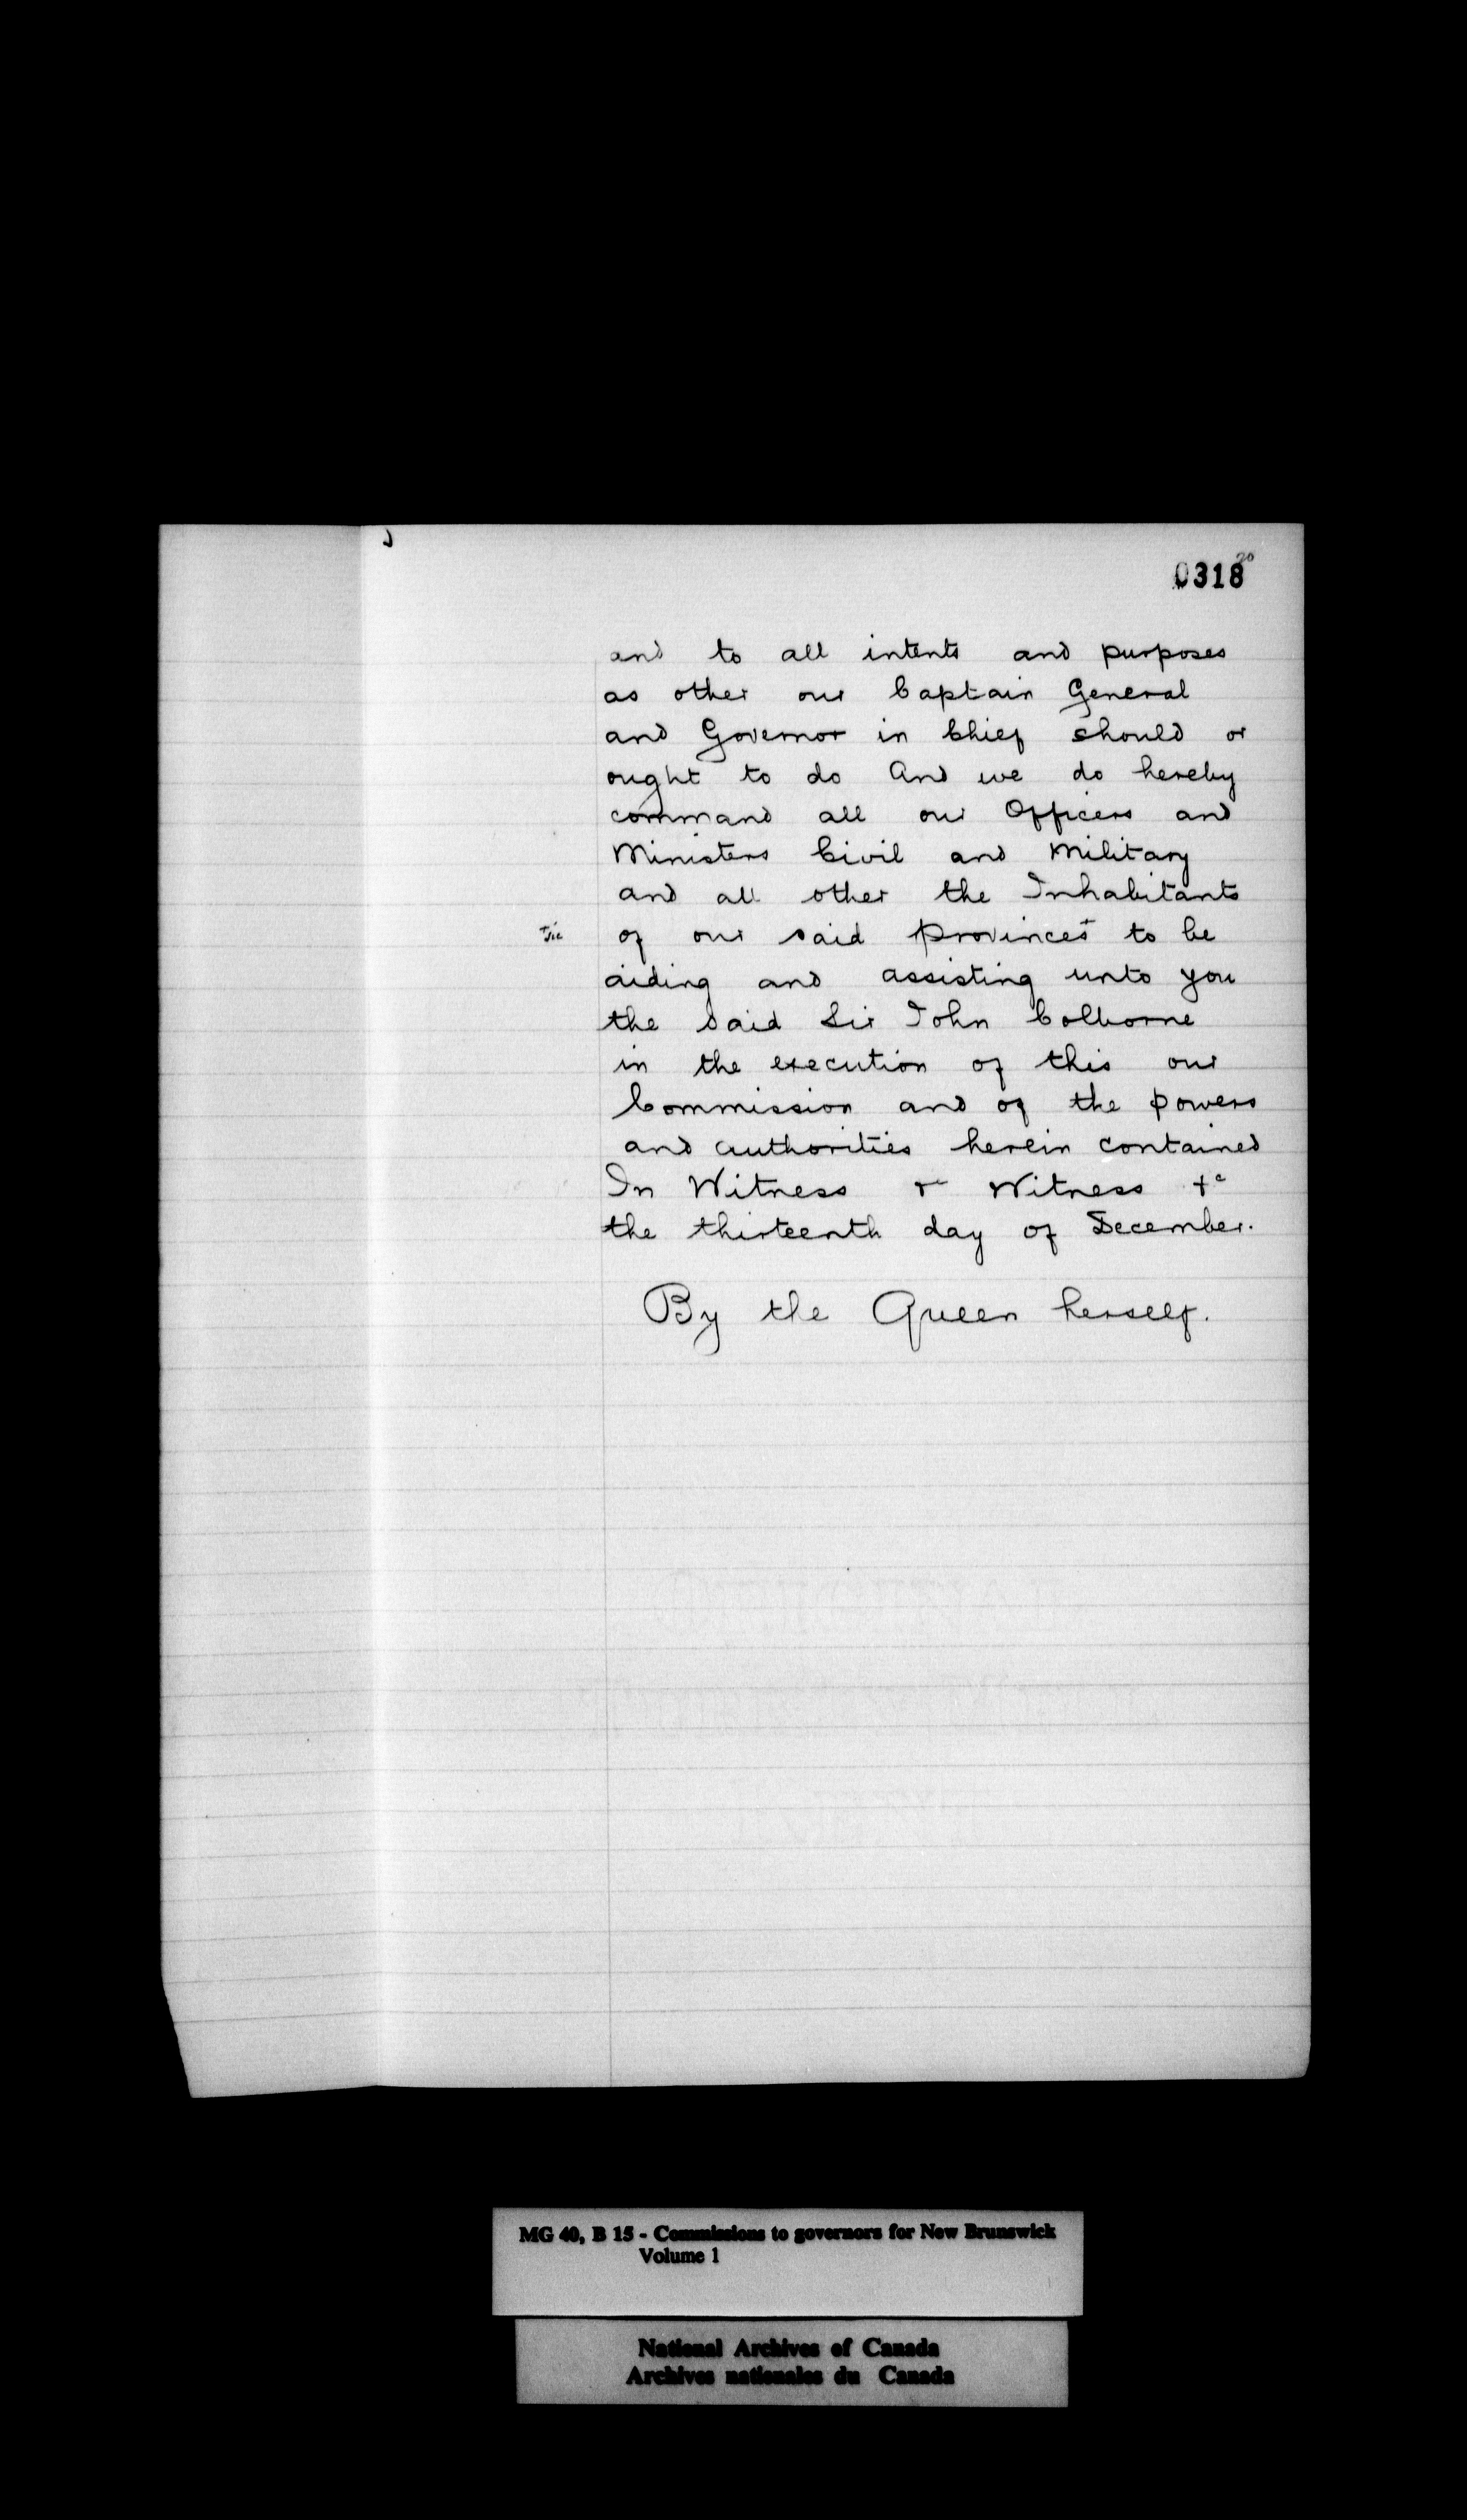 20
0318
and to all intents and purposes
as other our Captain General
and Governor in Chief should or
ought to do And we do hereby
command all our Officers and
Ministers Civil and Military
and all other the Inhabitants
+sic of our said Provinces+ to be
aiding and assisting unto you
the said Sir John Colborne
in the execution of this our
Commission and of the powers
and authorities herein contained
In Witness &c Witness &c
the thirteenth day of December.
By the Queen herself.
MG 40, B 15 - Commissions to governors for New Brunswick
Volume 1
National Archives of Canada
Archives nationales du Canada